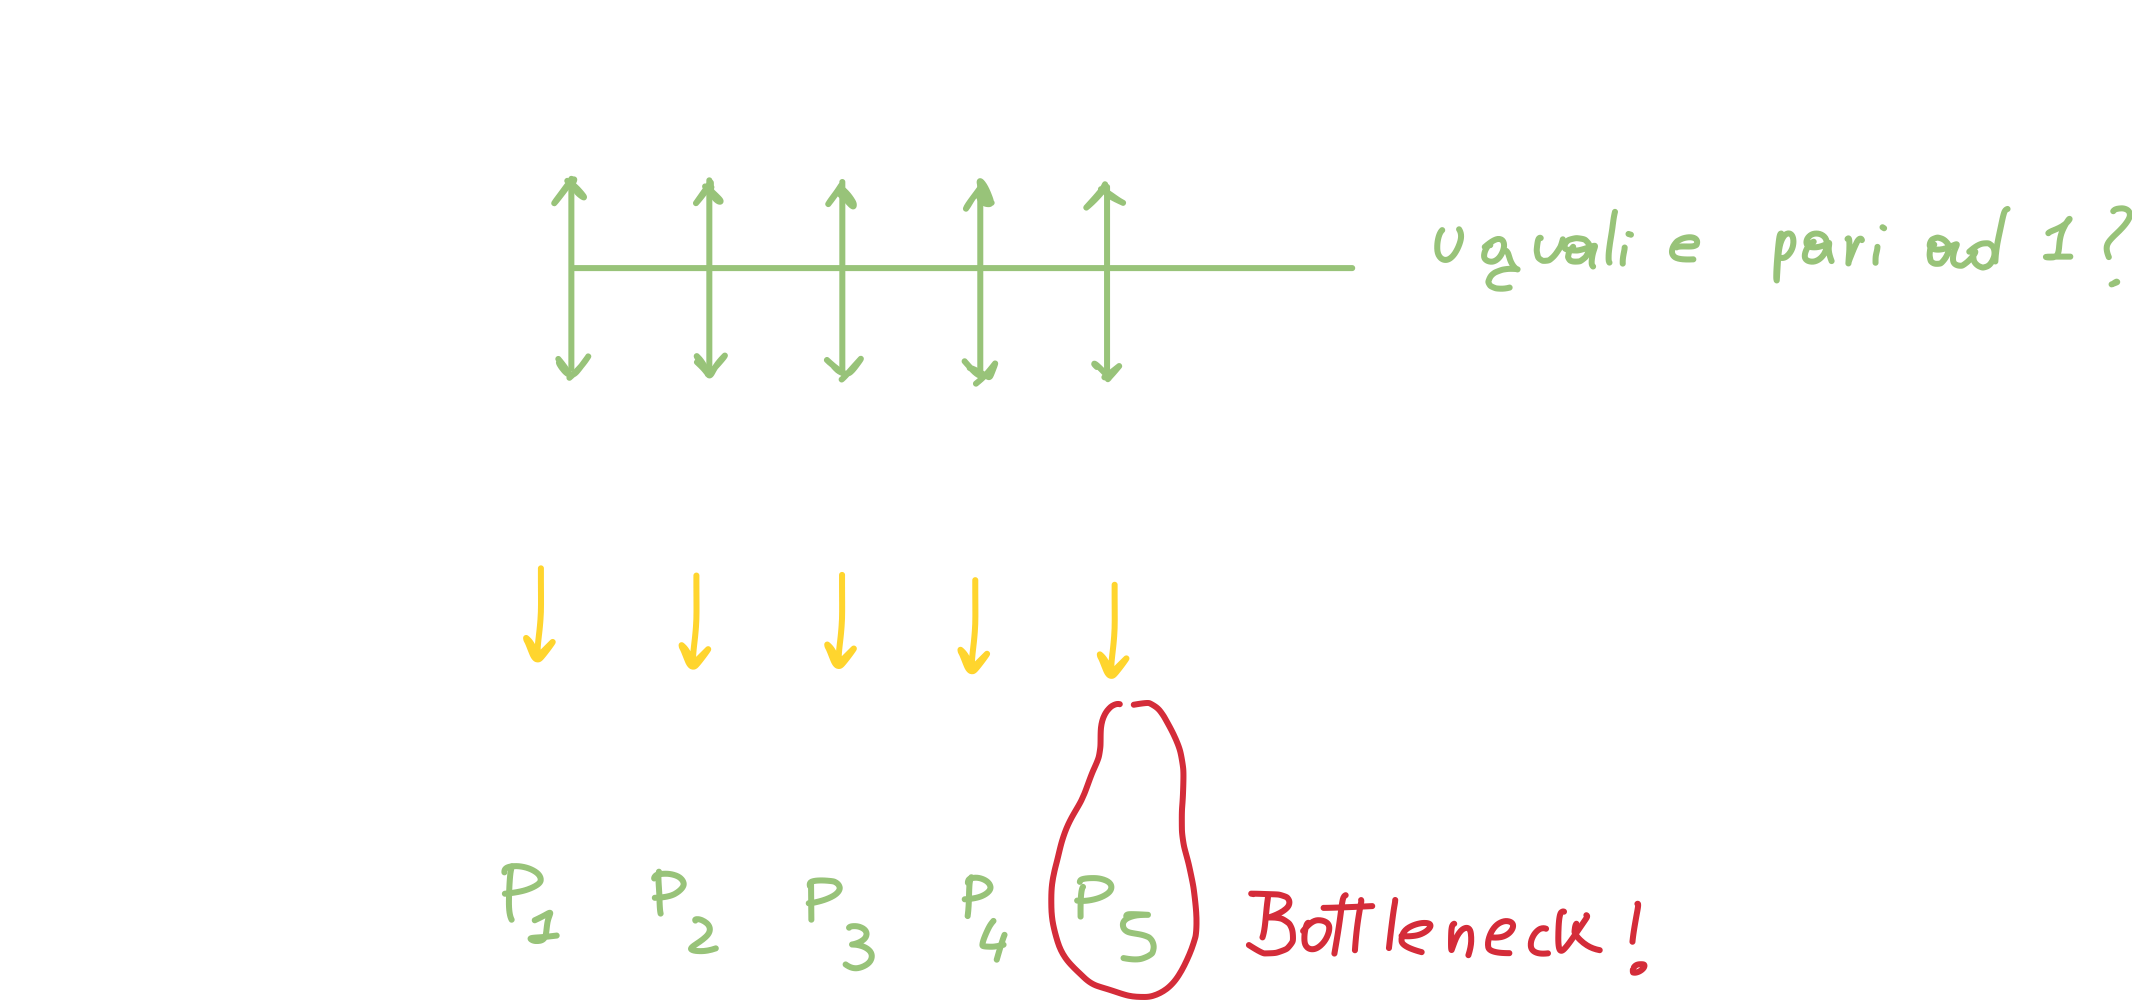 uguali e pari ad 1?
P1 P2 P3 P4 P5 Bottleneck!